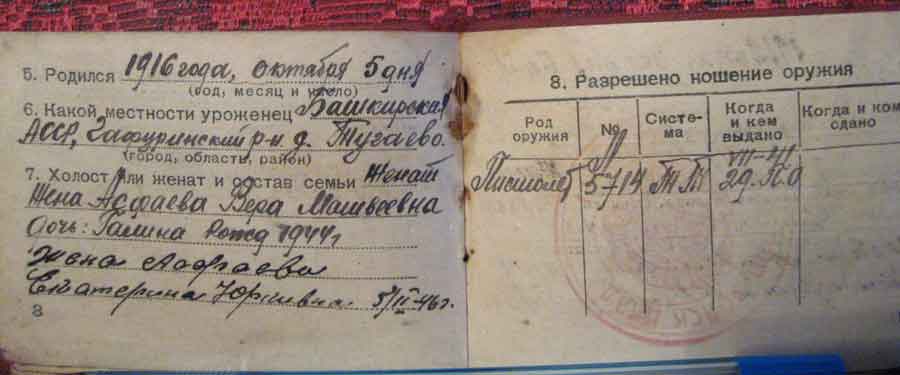 5. Родился 1916 года, октября 5 дня
(год, месяц и число)
6. Какой местности уроженец Башкирская
АССР, Гафуринский р-н д. Тугаево.
(город, область, район)
7. Холост или женат и состав семьи Женат
Жена Асфаева Вера Матвеевна
Дочь: Галина рожд 1944г
Жена Асфаева
Екатерина Юрьевна. 5/II-46г.
8
8. Разрешено ношение оружия
Род оружия
№
Систе-ма
Когда и кем выдано
Когда и кем сдано
VIII-41
Пистолет 5714 ТТ 29